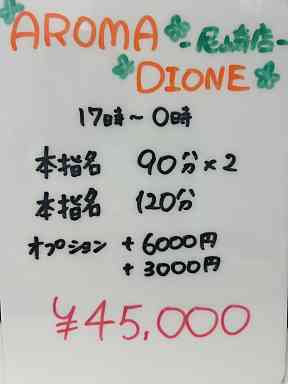 AROMA -尼崎店-
DIONE
17時～0時
本指名 90分×2
本指名 120分
オプション +6000円
+3000円
¥45,000